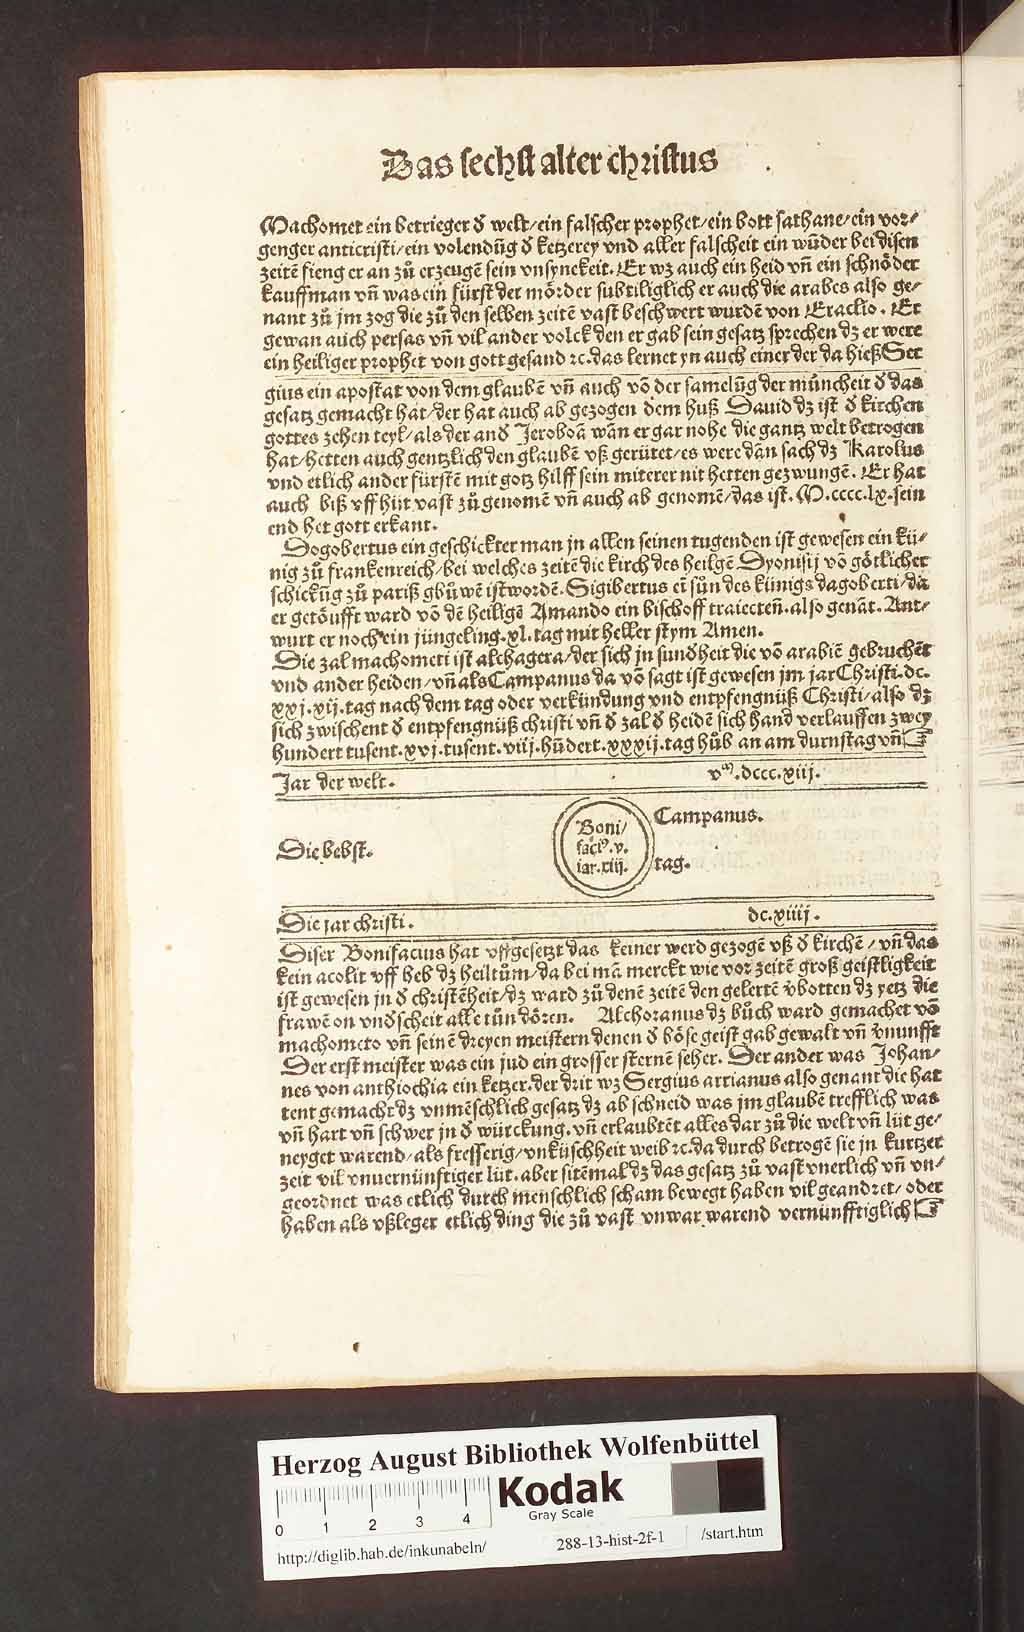 Das sechst alter christus
Machomet ein betrieger d̕ welt/ein falscher prophet/ein bott sathane/ein vor⸗
genger anticristi/ein volendūg d̕ ketzerey vnd aller falscheit ein wūder bei disen
zeitē fieng er an zů erzeugē sein vnsynekeit. Er wz auch ein heid vn̄ ein schnöder
kauffman vn̄ was ein fürst der mörder subtiliglich er auch die arabes also ge⸗
nant zů jm zog die zů den selben zeitē vast beschwert wurdē von Eraclio. Er
gewan auch persas vn̄ vil ander volck den er gab sein gesatz sprechen dz er were
ein heiliger prophet von gott gesand ꝛc. das lernet yn auch einer der da hieß Ser
gius ein apostat von dem glaubē vn̄ auch vō der samelūg der müncheit d̕ das
gesatz gemacht hat/der hat auch ab gezogen dem huß Dauid dz ist d̕ kirchen
gottes zehen teyl/als der and̕ Jeroboā wān er gar nohe die gantz welt betrogen
hat/hetten auch gentzlich den glaubē vß gerütet/es were dān sach dz Karolus
vnd etlich ander fürstē mit gotz hilff sein miterer nit hetten gezwungē. Er hat
auch biß vff hüt vast zů genomē vn̄ auch ab genomē/das ist. M.cccc.lx. sein
end het gott erkant.
Dogobertus ein geschickter man jn allen seinen tugenden ist gewesen ein kü⸗
nig zů frankenreich/bei welches zeitē die kirch des heilgē Dyonisij vō götlicher
schickūg zů pariß gbůwē ist wordē. Sigibertus eī sůn des künigs dagoberti/da
er getöufft ward vō dē heiligē Amando ein bischoff traiecten̄. also genāt. Ant⸗
wurt er noch ein jüngeling. xl. tag mit heller stym Amen.
Die zal machometi ist alchagera/der sich jn sund̕heit die vō arabiē gebruchēt
vnd ander heiden/vn̄ als Campanus da vō sagt ist gewesen jm jar Christi. dc.
xxj. xij. tag nach dem tag oder verkündung vnd entpfengnüß Christi/also dz
sich zwischent d̕ entpfengnüß christi vn̄ d̕ zal d̕ heidē sich hand verlauffen zwey
hundert tusent. xvj. tusent. viij. hūdert. xxxij. tag hůb an am durnstag vn̄ ☞
Jar der welt. vᵐ. dccc. xiij.
Campanus.
Boni/
faci⁹. v.
iar. xiij.
Die bebst.
tag.
Die jar christi. dc. xiiij.
Diser Bonifacius hat vffgesetzt das keiner werd gezogē vß d̕ kirchē/vn̄ das
kein acolit vff heb dz heiltům/da bei mā merckt wie vor zeitē groß geistligkeit
ist gewesen jn d̕ christēheit/dz ward zů denē zeitē den gelertē v̕botten dz yetz die
frawē on vnd̕scheit alle tůn dören. Alchoranus dz bůch ward gemachet vō
machometo vn̄ seinē dreyen meistern denen d̕ böse geist gab gewalt vn̄ v̕nunfft
Der erst meister was ein jud ein grosser sternē seher. Der ander was Johan⸗
nes von anthiochia ein ketzer. der drit wz Sergius arrianus also genant die hat
tent gemacht dz vnmēschlich gesatz dz ab schneid was jm glaubē trefflich was
vn̄ hart vn̄ schwer jn d̕ würckung. vn̄ erlaubtēt alles dar zů die welt vn̄ lüt ge⸗
neyget warend/als fresserig/vnküschheit weib ꝛc. da durch betrogē sie jn kurtzer
zeit vil vnuernünftiger lüt. aber sitēmal dz das gesatz zů vast vnerlich vn̄ vn⸗
geordnet was etlich durch menschlich scham bewegt haben vil geandret/oder
haben als vßleger etlich ding die zů vast vnwar warend vernünfftiglich ☞
Herzog August Bibliothek Wolfenbüttel
Kodak
Gray Scale
0 1 2 3 4
http://diglib.hab.de/inkunabeln/ 288-13-hist-2f-1 /start.htm